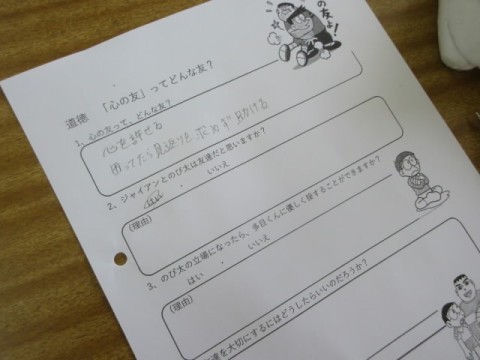 の友よ！
道徳　「心の友」ってどんな友？
1、心の友って、どんな友？
心を許せる
困ってたら見返りを求めず助ける
2、ジャイアンとのび太は友達だと思いますか？
はい　・　いいえ
（理由）
3、のび太の立場になったら、多目くんに優しく接することができますか？
はい　・　いいえ
（理由）
達を大切にするにはどうしたらいいのだろうか？